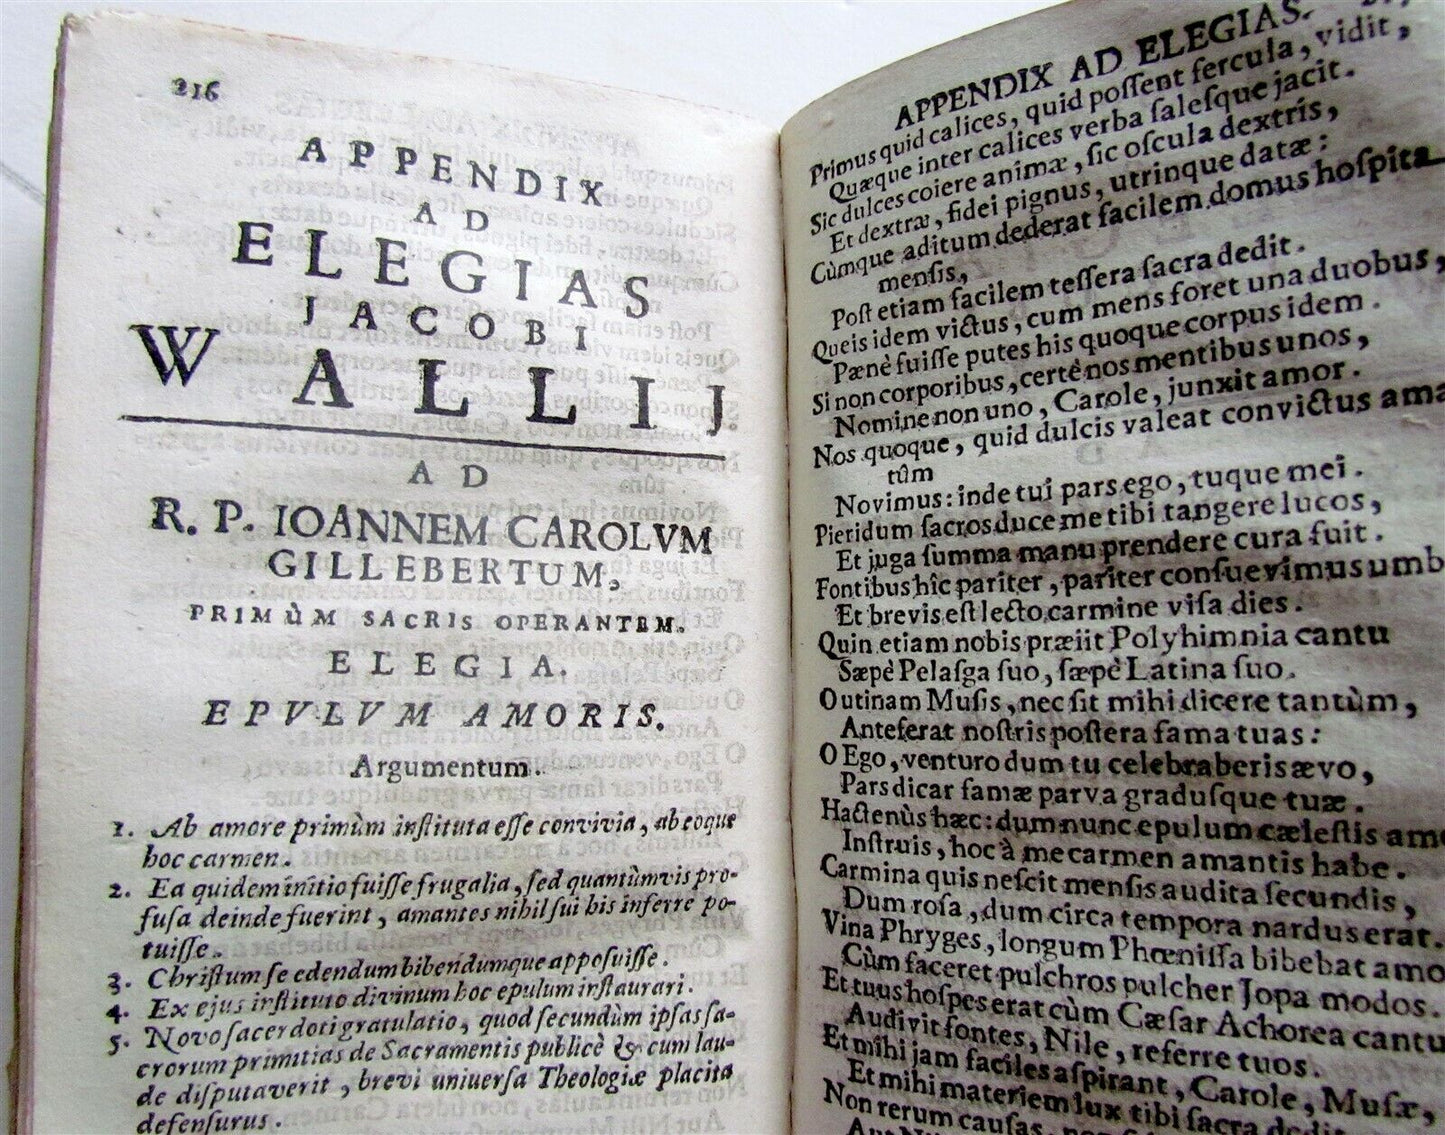 216
APPENDIX
AD
ELEGIAS
JACOBI
WALLIJ
AD
R. P. IOANNEM CAROLVM
GILLEBERTUM,
PRIMÙM SACRIS OPERANTEM.
ELEGIA.
EPVLVM AMORIS.
Argumentum.
1. Ab amore primùm instituta esse convivia, ab eoque
hoc carmen.
2. Ea quidem initio fuisse frugalia, sed quantùmvis pro-
fusa deinde fuerint, amantes nihil sui his inferre po-
tuisse.
3. Christum se edendum bibendumque apposuisse.
4. Ex ejus instituto divinum hoc epulum instaurari.
5. Novo sacerdoti gratulatio, quod secundùm ipsas sa-
crorum primitias de Sacramentis publicè & cum lau-
de disputaverit, brevi universa Theologiæ placita
defensurus.
APPENDIX AD ELEGIAS.
Primus quid calices, quid possent fercula, vidit,
Quæque inter calices verba salesque jacit.
Sic dulces coiere animæ, sic oscula dextris,
Et dextræ, fidei pignus, utrinque datæ:
Cùmque aditum dederat facilem domus hospita
mensis,
Post etiam facilem tessera sacra dedit.
Queis idem victus, cum mens foret una duobus,
Pænè fuisse putes his quoque corpus idem.
Si non corporibus, certè nos mentibus unos,
Nomine non uno, Carole, junxit amor.
Nos quoque, quid dulcis valeat convictus aman
tûm
Novimus: inde tui pars ego, tuque mei.
Pieridum sacros duce me tibi tangere lucos,
Et juga summa manu prendere cura fuit.
Fontibus hîc pariter, pariter consuevimus umb
Et brevis est lecto carmine visa dies.
Quin etiam nobis præiit Polyhimnia cantu
Sæpè Pelasga suo, sæpè Latina suo.
O utinam Musis, nec sit mihi dicere tantùm,
Anteferat nostris postera fama tuas:
O Ego, venturo dum tu celebraberis ævo,
Pars dicar famæ parva gradusque tuæ.
Hactenùs hæc: dum nunc epulum cælestis amo
Instruis, hoc à me carmen amantis habe.
Carmina quis nescit mensis audita secundis,
Dum rosa, dum circa tempora nardus erat.
Vina Phryges, longum Phœnissa bibebat amo
Cùm faceret pulchros pulcher Jopa modos.
Et tuus hospes erat cùm Cæsar Achorea cantu
Audivit fontes, Nile, referre tuos.
Et mihi jam faciles aspirant, Carole, Musæ,
Et mihi materiem lux tibi sacra dedit
Non rerum causas,
Aut